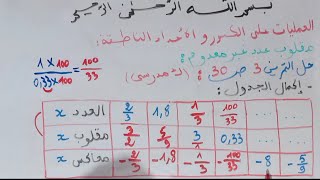 بسم الله الرحمن الرحيم
العمليات على الكسور و الأعداد الناطقة:
مقلوب عدد غير معدوم:
حل التمرين 3 ص 30: (الكتاب المدرسي)
- إكمال الجدول:
1 × 100 / 0,33 × 100 = 100 / 33
العدد x | 2/3 | 1,8 | 1/3 | 100/33 | ... | ...
مقلوب x | 3/2 | 5/9 | 3/1 | 0,33 | ... | ...
معاكس x | -2/3 | -1,8 | -1/3 | -100/33 | -8 | -5/9